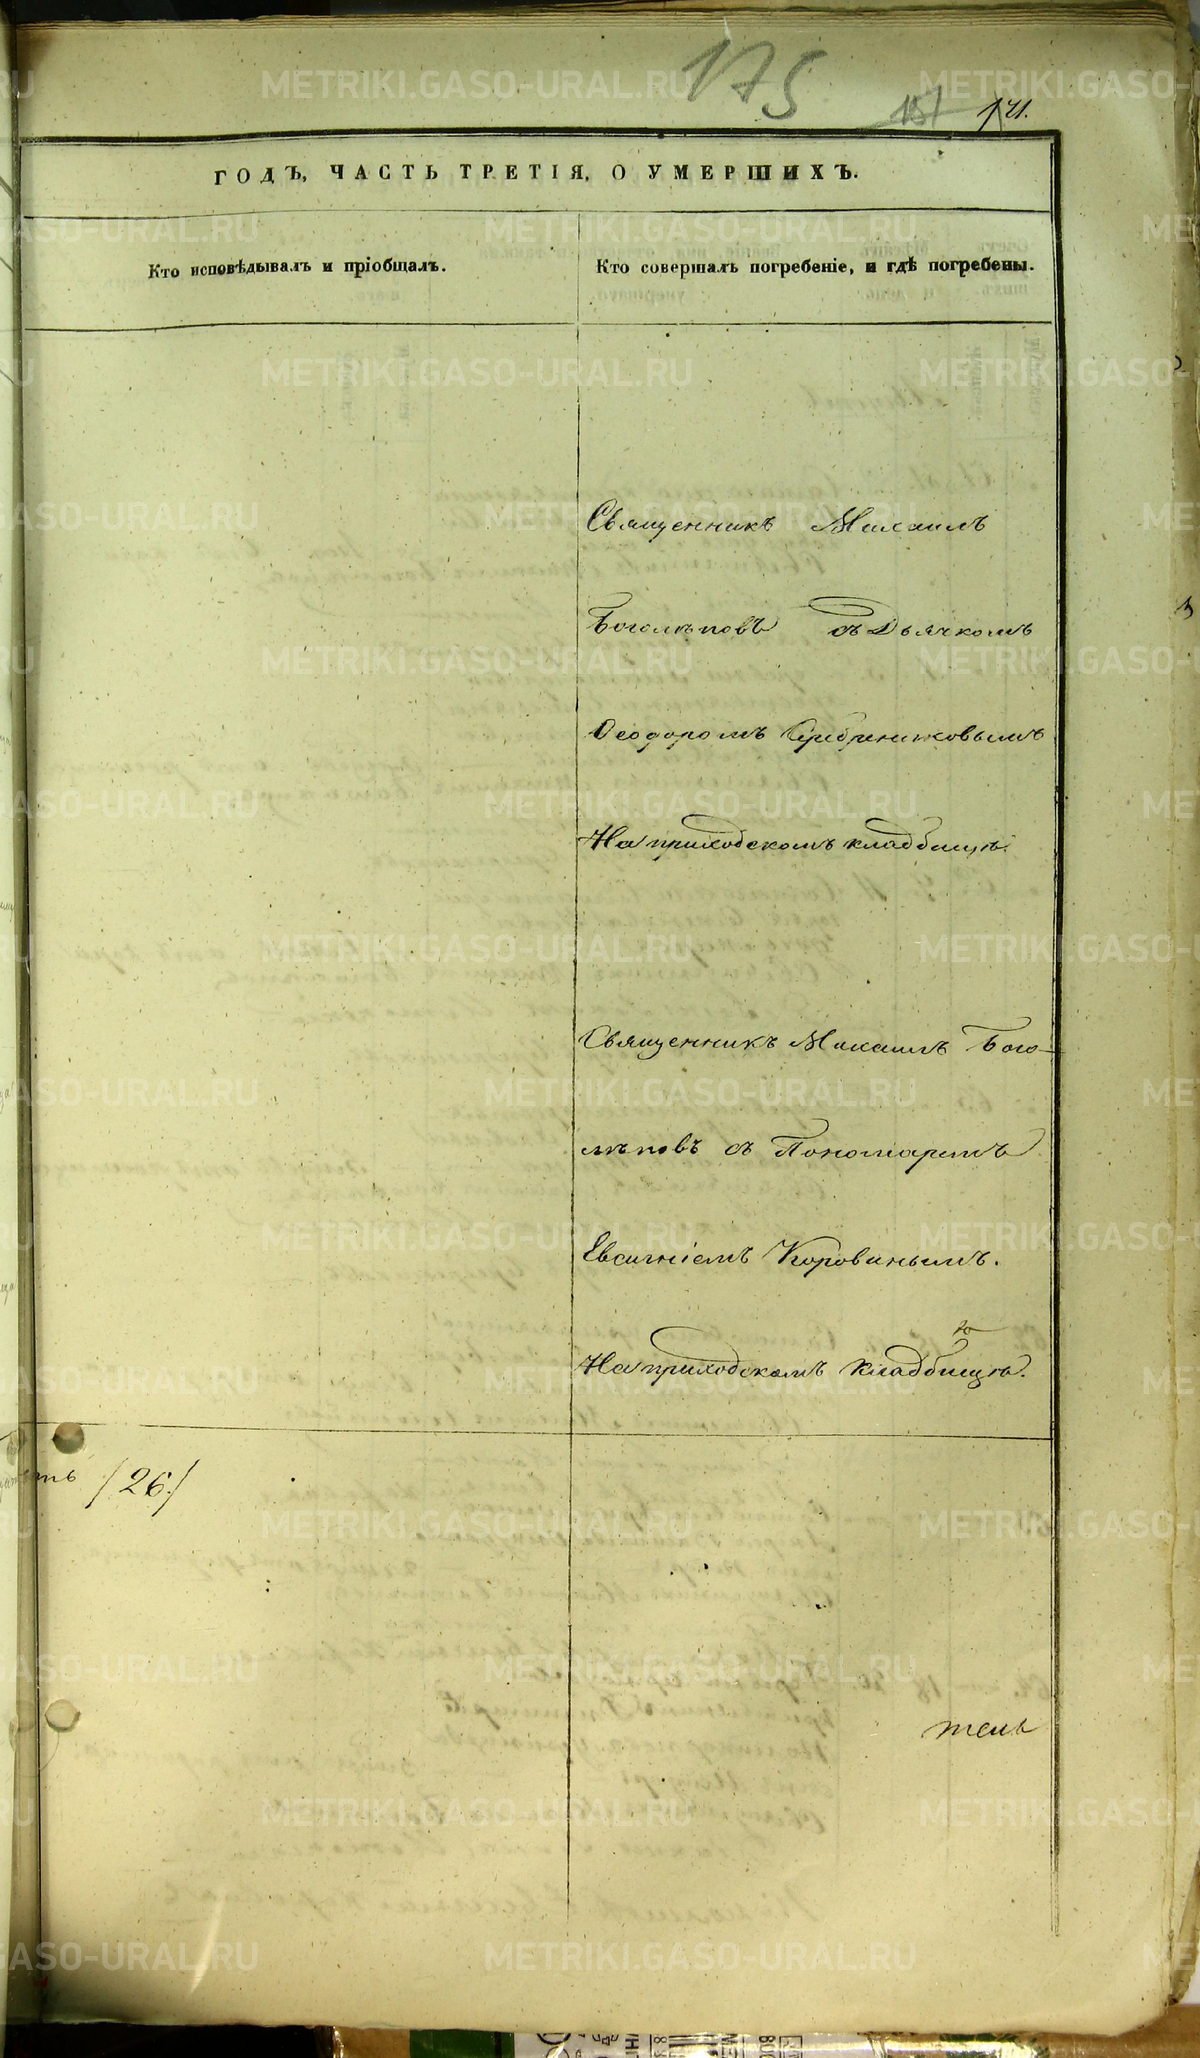 175
157 171.
ГОДЪ, ЧАСТЬ ТРЕТІЯ, О УМЕРШИХЪ.
Кто исповѣдывалъ и пріобщалъ.
Кто совершалъ погребеніе, и гдѣ погребены.
Священникъ Михаилъ
Боголѣповъ съ Дьячкомъ
Ѳеодоромъ Серебренниковымъ
На приходскомъ кладбищѣ.
Священникъ Михаилъ Бого-
лѣповъ съ Пономаремъ
Евсигніемъ Коровинымъ.
На приходскомъ кладбищѣ.
/26./
тель
METRIKI.GASO-URAL.RU